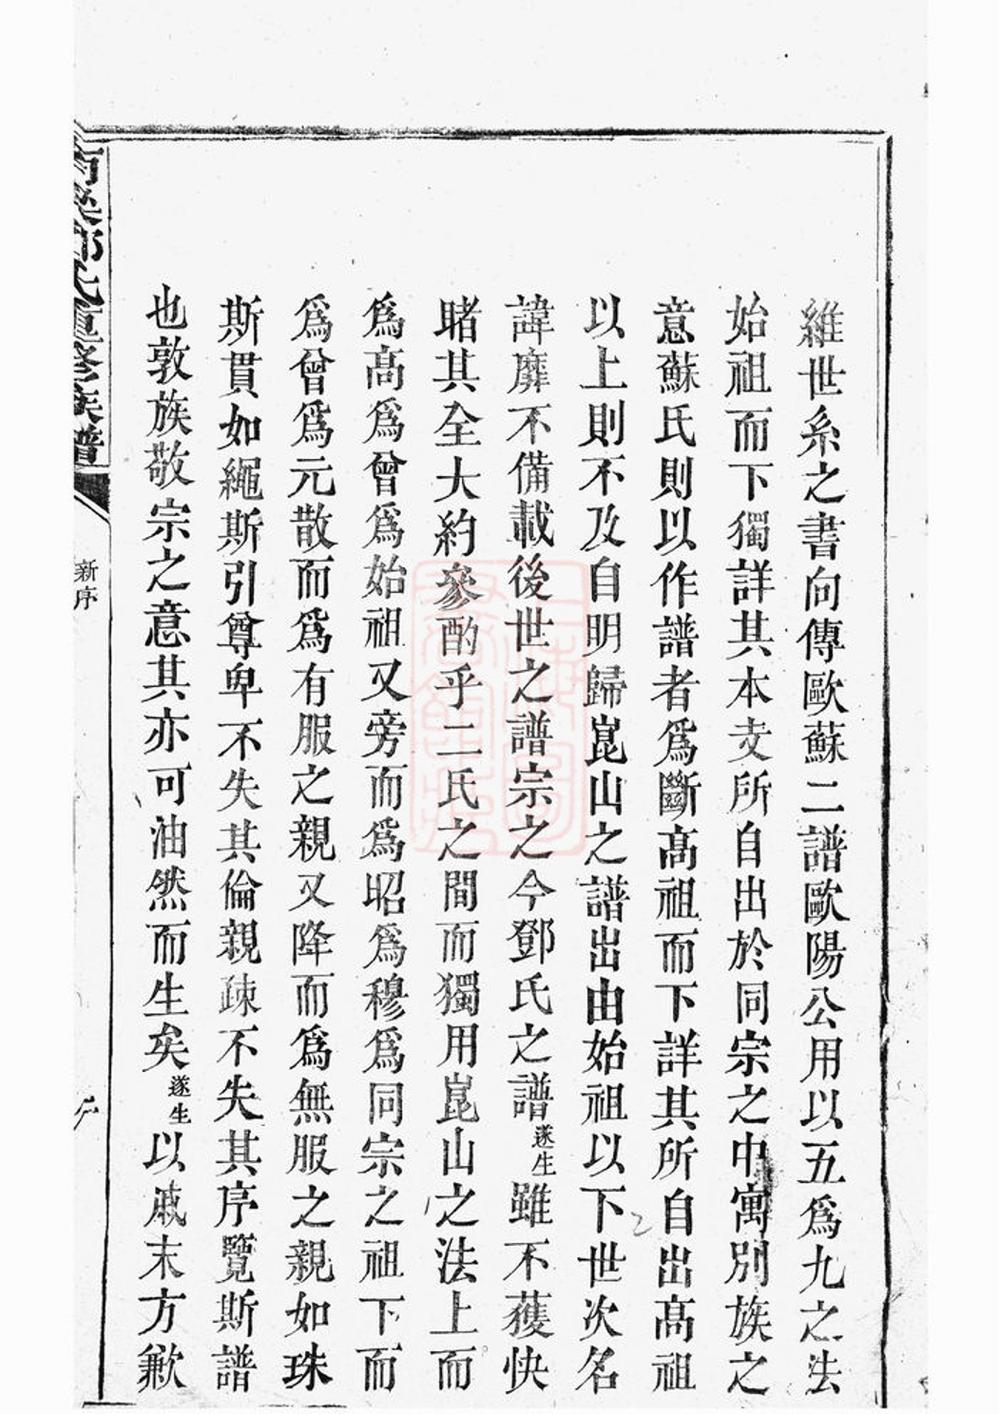 維世系之書向傳歐蘇二譜歐陽公用以五爲九之法
始祖而下獨詳其本支所自出於同宗之中寓別族之
意蘇氏則以作譜者爲斷高祖而下詳其所自出高祖
以上則不及自明歸崑山之譜出由始祖以下世次名
諱靡不備載後世之譜宗之今鄧氏之譜遂生雖不獲快
睹其全大約參酌乎二氏之間而獨用崑山之法上而
爲高爲曾爲始祖又旁而爲昭爲穆爲同宗之祖下而
爲曾爲元散而爲有服之親又降而爲無服之親如珠
斯貫如繩斯引尊卑不失其倫親疎不失其序覽斯譜
也敦族敬宗之意其亦可油然而生矣遂生以戚末方歉
氏重修族譜
新序